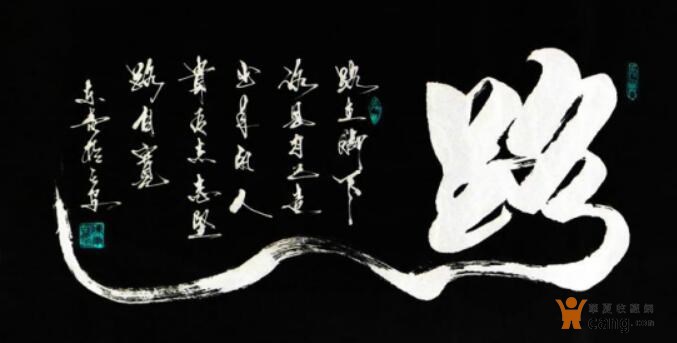 路
路在脚下
路是自己走
出来的人
贵有志志坚
路自宽
华夏收藏网
cang.com